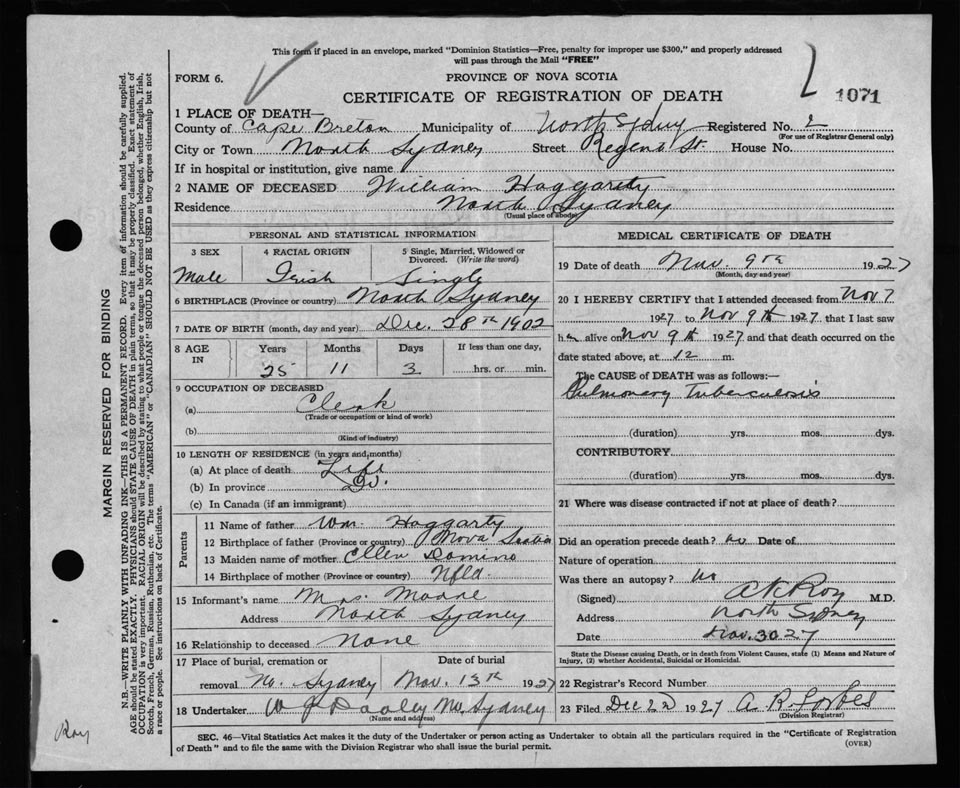 This form if placed in an envelope, marked "Dominion Statistics—Free, penalty for improper use $300," and properly addressed
will pass through the Mail "FREE"
FORM 6.
PROVINCE OF NOVA SCOTIA
CERTIFICATE OF REGISTRATION OF DEATH
1071
1 PLACE OF DEATH—
County of Cape Breton Municipality of North Sydney Registered No. 2
(For use of Registrar General only)
City or Town North Sydney Street Regent St. House No.
If in hospital or institution, give name
2 NAME OF DECEASED William Haggarty
Residence North Sydney
(Usual place of abode)
PERSONAL AND STATISTICAL INFORMATION
3 SEX 4 RACIAL ORIGIN 5 Single, Married, Widowed or Divorced. (Write the word)
Male Irish Single
6 BIRTHPLACE (Province or country) North Sydney
7 DATE OF BIRTH (month, day and year) Dec. 28th 1902
8 AGE IN Years Months Days If less than one day,
25 11 3 hrs. or min.
9 OCCUPATION OF DECEASED
(a) Clerk
(Trade or occupation or kind of work)
(b)
(Kind of industry)
10 LENGTH OF RESIDENCE (in years and months)
(a) At place of death Life
(b) In province Do.
(c) In Canada (if an immigrant)
Parents
11 Name of father Wm. Haggarty
12 Birthplace of father (Province or country) Nova Scotia
13 Maiden name of mother Ellen Domino
14 Birthplace of mother (Province or country) Nfld.
15 Informant's name Mrs. Moore
Address North Sydney
16 Relationship to deceased None
17 Place of burial, cremation or Date of burial
removal No. Sydney Nov. 13th 1927
18 Undertaker W J Dooley No. Sydney
(Name and address)
MEDICAL CERTIFICATE OF DEATH
19 Date of death Nov. 9th 1927
(Month, day and year)
20 I HEREBY CERTIFY that I attended deceased from Nov 7
1927 to Nov 9th 1927 that I last saw
him alive on Nov 9th 1927 and that death occurred on the
date stated above, at 12 m.
The CAUSE of DEATH was as follows:—
Pulmonary Tuberculosis
(duration) yrs. mos. dys.
CONTRIBUTORY
(duration) yrs. mos. dys.
21 Where was disease contracted if not at place of death?
Did an operation precede death? no Date of
Nature of operation
Was there an autopsy? no
(Signed) A K Roy M.D.
Address North Sydney
Date Nov. 30 27
State the Disease causing Death, or in death from Violent Causes, state (1) Means and Nature of
Injury, (2) whether Accidental, Suicidal or Homicidal.
22 Registrar's Record Number
23 Filed Dec 22 1927 A. R. Forbes
(Division Registrar)
SEC. 46—Vital Statistics Act makes it the duty of the Undertaker or person acting as Undertaker to obtain all the particulars required in the "Certificate of Registration
of Death" and to file the same with the Division Registrar who shall issue the burial permit.
(OVER)
MARGIN RESERVED FOR BINDING
N.B.—WRITE PLAINLY, WITH UNFADING INK—THIS IS A PERMANENT RECORD. Every item of information should be carefully supplied.
AGE should be stated EXACTLY. PHYSICIANS should STATE CAUSE OF DEATH in plain terms, so that it may be properly classified. Exact statement of
OCCUPATION is very important. RACIAL ORIGIN will be described by stating to what people or tongue the deceased person belonged, whether English, Irish,
Scotch, French, German, Russian, Ruthenian, etc. The terms "AMERICAN" or "CANADIAN" SHOULD NOT BE USED as they express citizenship but not
a race or people. See instructions on back of Certificate.
Roy